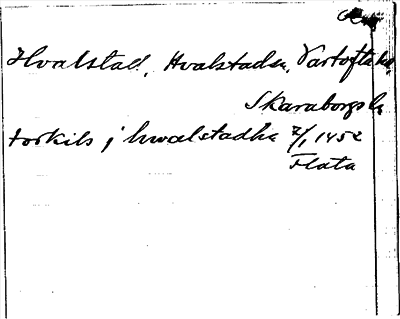 Hvalstad, Hvalstads, Vartofta h.
Skaraborgs l.
torkils j hwalstadha 7/1 1452